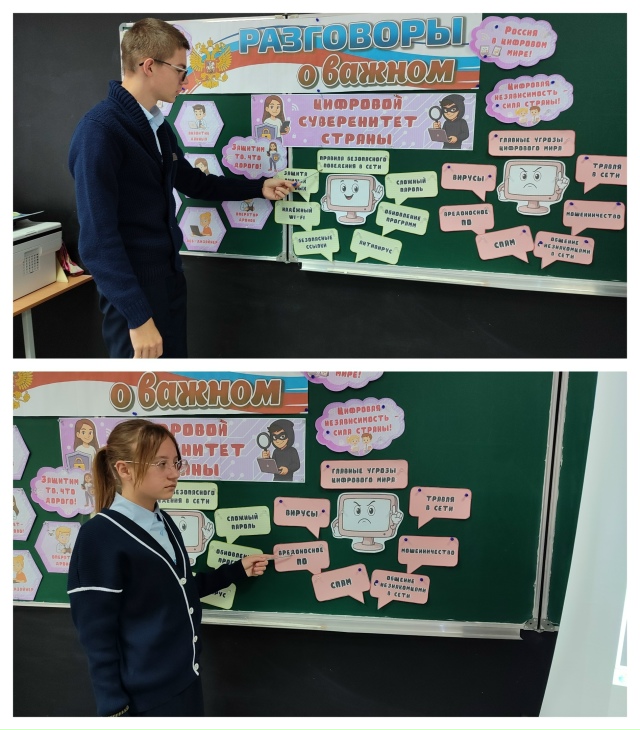 РАЗГОВОРЫ
о важном
РОССИЯ
В ЦИФРОВОМ
МИРЕ!
ЦИФРОВОЙ
СУВЕРЕНИТЕТ
СТРАНЫ
ЦИФРОВАЯ
НЕЗАВИСИМОСТЬ
СИЛА СТРАНЫ!
ЗАЩИТИМ
ТО, ЧТО
ДОРОГО!
ПРАВИЛА БЕЗОПАСНОГО
ПОВЕДЕНИЯ В СЕТИ
ЗАЩИТА
СЛОЖНЫЙ
ПАРОЛЬ
НАДЁЖНЫЙ
WI-FI
ОБНОВЛЕНИЕ
ПРОГРАММ
БЕЗОПАСНЫЕ
ССЫЛКИ
АНТИВИРУС
ГЛАВНЫЕ УГРОЗЫ
ЦИФРОВОГО МИРА
ВИРУСЫ
ТРАВЛЯ
В СЕТИ
ВРЕДНОСНОЕ
ПО
МОШЕННИЧЕСТВО
СПАМ
ОБЩЕНИЕ
С НЕЗНАКОМЦАМИ
В СЕТИ
о важном
МИРЕ!
РОВОЙ
НИТЕТ
НЫ
ЦИФРОВАЯ
НЕЗАВИСИМОСТЬ
СИЛА СТРАНЫ!
ЗАЩИТИМ
ТО, ЧТО
ДОРОГО!
БЕЗОПАСНОГО
ВЕДЕНИЯ В СЕТИ
СЛОЖНЫЙ
ПАРОЛЬ
ОБНОВЛЕ
ПРОГ
РУС
ГЛАВНЫЕ УГРОЗЫ
ЦИФРОВОГО МИРА
ВИРУСЫ
ТРАВЛЯ
В СЕТИ
ВРЕДНОСНОЕ
ПО
МОШЕННИЧЕСТВО
СПАМ
ОБЩЕНИЕ
С НЕЗНАКОМЦАМИ
В СЕТИ